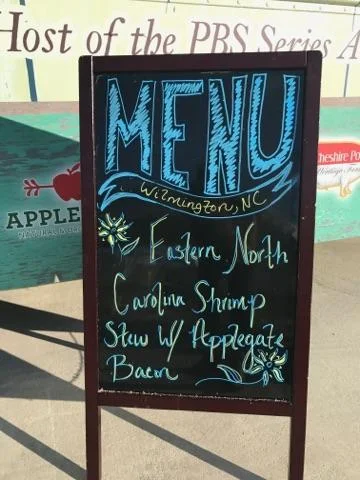 Host of the PBS Series A
MENU
Wilmington, NC
Eastern North
Carolina Shrimp
Stew W/ Applegate
Bacon
APPLE
NATURAL &
Cheshire Po
Heritage Farm